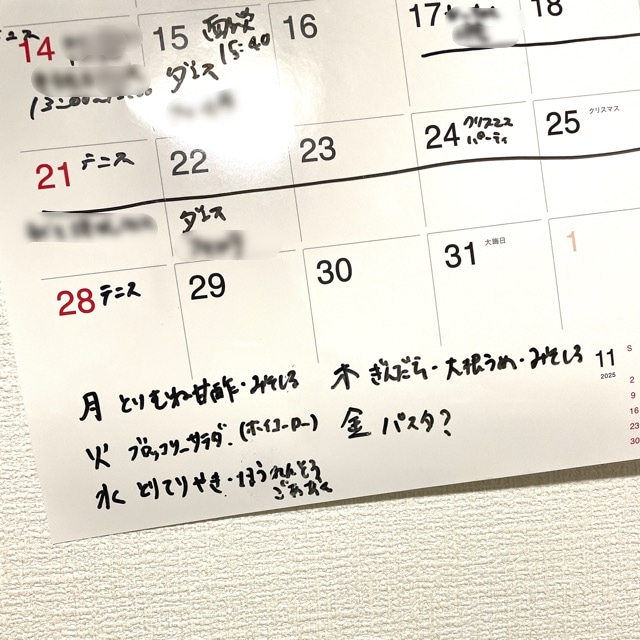 テニス
14
15 面談
15:40
ダンス
16
17
18
21 テニス
22
ダンス
23
24 クリスマス
パーティ
25 クリスマス
28 テニス
29
30
31 大晦日
1
月 とりむね甘酢・みそしる
火 ブロッコリーサラダ(ホイコーロー)
水 とりてりやき・ほうれんそう
ごまあえ
木 ぎんだら・大根うめ・みそしる
金 パスタ?
11
2025
S
2
9
16
23
30